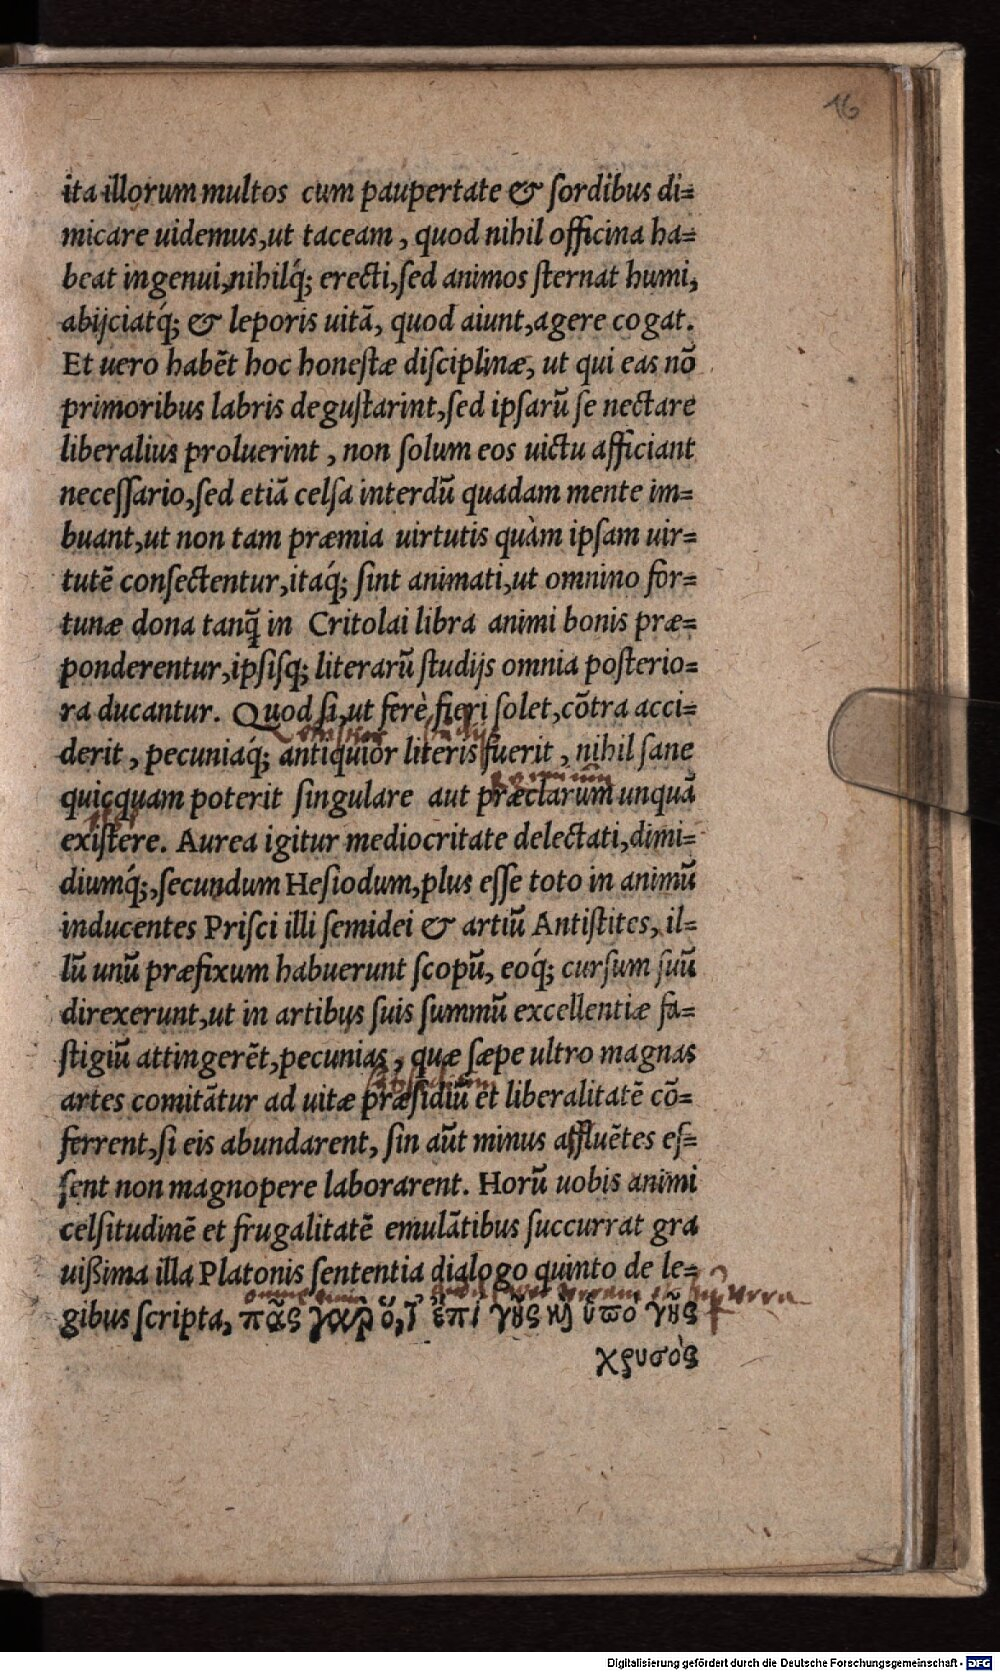 16
ita illorum multos cum paupertate & ſordibus di=
micare uidemus, ut taceam, quod nihil officina ha=
beat ingenui, nihilq́; erecti, ſed animos ſternat humi,
abijciatq́; & leporis uitā, quod aiunt, agere cogat.
Et uero habēt hoc honeſtæ diſciplinæ, ut qui eas nō
primoribus labris deguſtarint, ſed ipſarū ſe nectare
liberalius proluerint, non ſolum eos uictu afficiant
neceſſario, ſed etiā celſa interdū quadam mente im=
buant, ut non tam præmia uirtutis quàm ipſam uir=
tutē conſectentur, itaq́; ſint animati, ut omnino for=
tunæ dona tanq̄ in Critolai libra animi bonis præ=
ponderentur, ipſiſq; literarū ſtudijs omnia poſterio=
ra ducantur. Quod ſi, ut ferè fieri ſolet, cōtra acci=
derit, pecuniaq́; antiquior literis fuerit, nihil ſane
quicquam poterit ſingulare aut præclarum unquā
exiſtere. Aurea igitur mediocritate delectati, dimi=
diumq́;, ſecundum Heſiodum, plus eſſe toto in animū
inducentes Priſci illi ſemidei & artiū Antiſtites, il=
lū unū præfixum habuerunt ſcopū, eoq́; curſum ſuū
direxerunt, ut in artibus ſuis ſummū excellentiæ fa=
ſtigiū attingerēt, pecunias, quæ ſæpe ultro magnas
artes comitātur ad uitæ præſidiū et liberalitatē cō=
ferrent, ſi eis abundarent, ſin aūt minus affluētes eſ=
ſent non magnopere laborarent. Horū uobis animi
celſitudinē et frugalitatē emulātibus ſuccurrat gra
uiſsima illa Platonis ſententia dialogo quinto de le=
gibus ſcripta, πᾶς γὰρ ὅ, τ᾽ ἐπὶ γῆς καὶ ὑπο γῆς
χρυσὸς
Digitalisierung gefördert durch die Deutsche Forschungsgemeinschaft - DFG